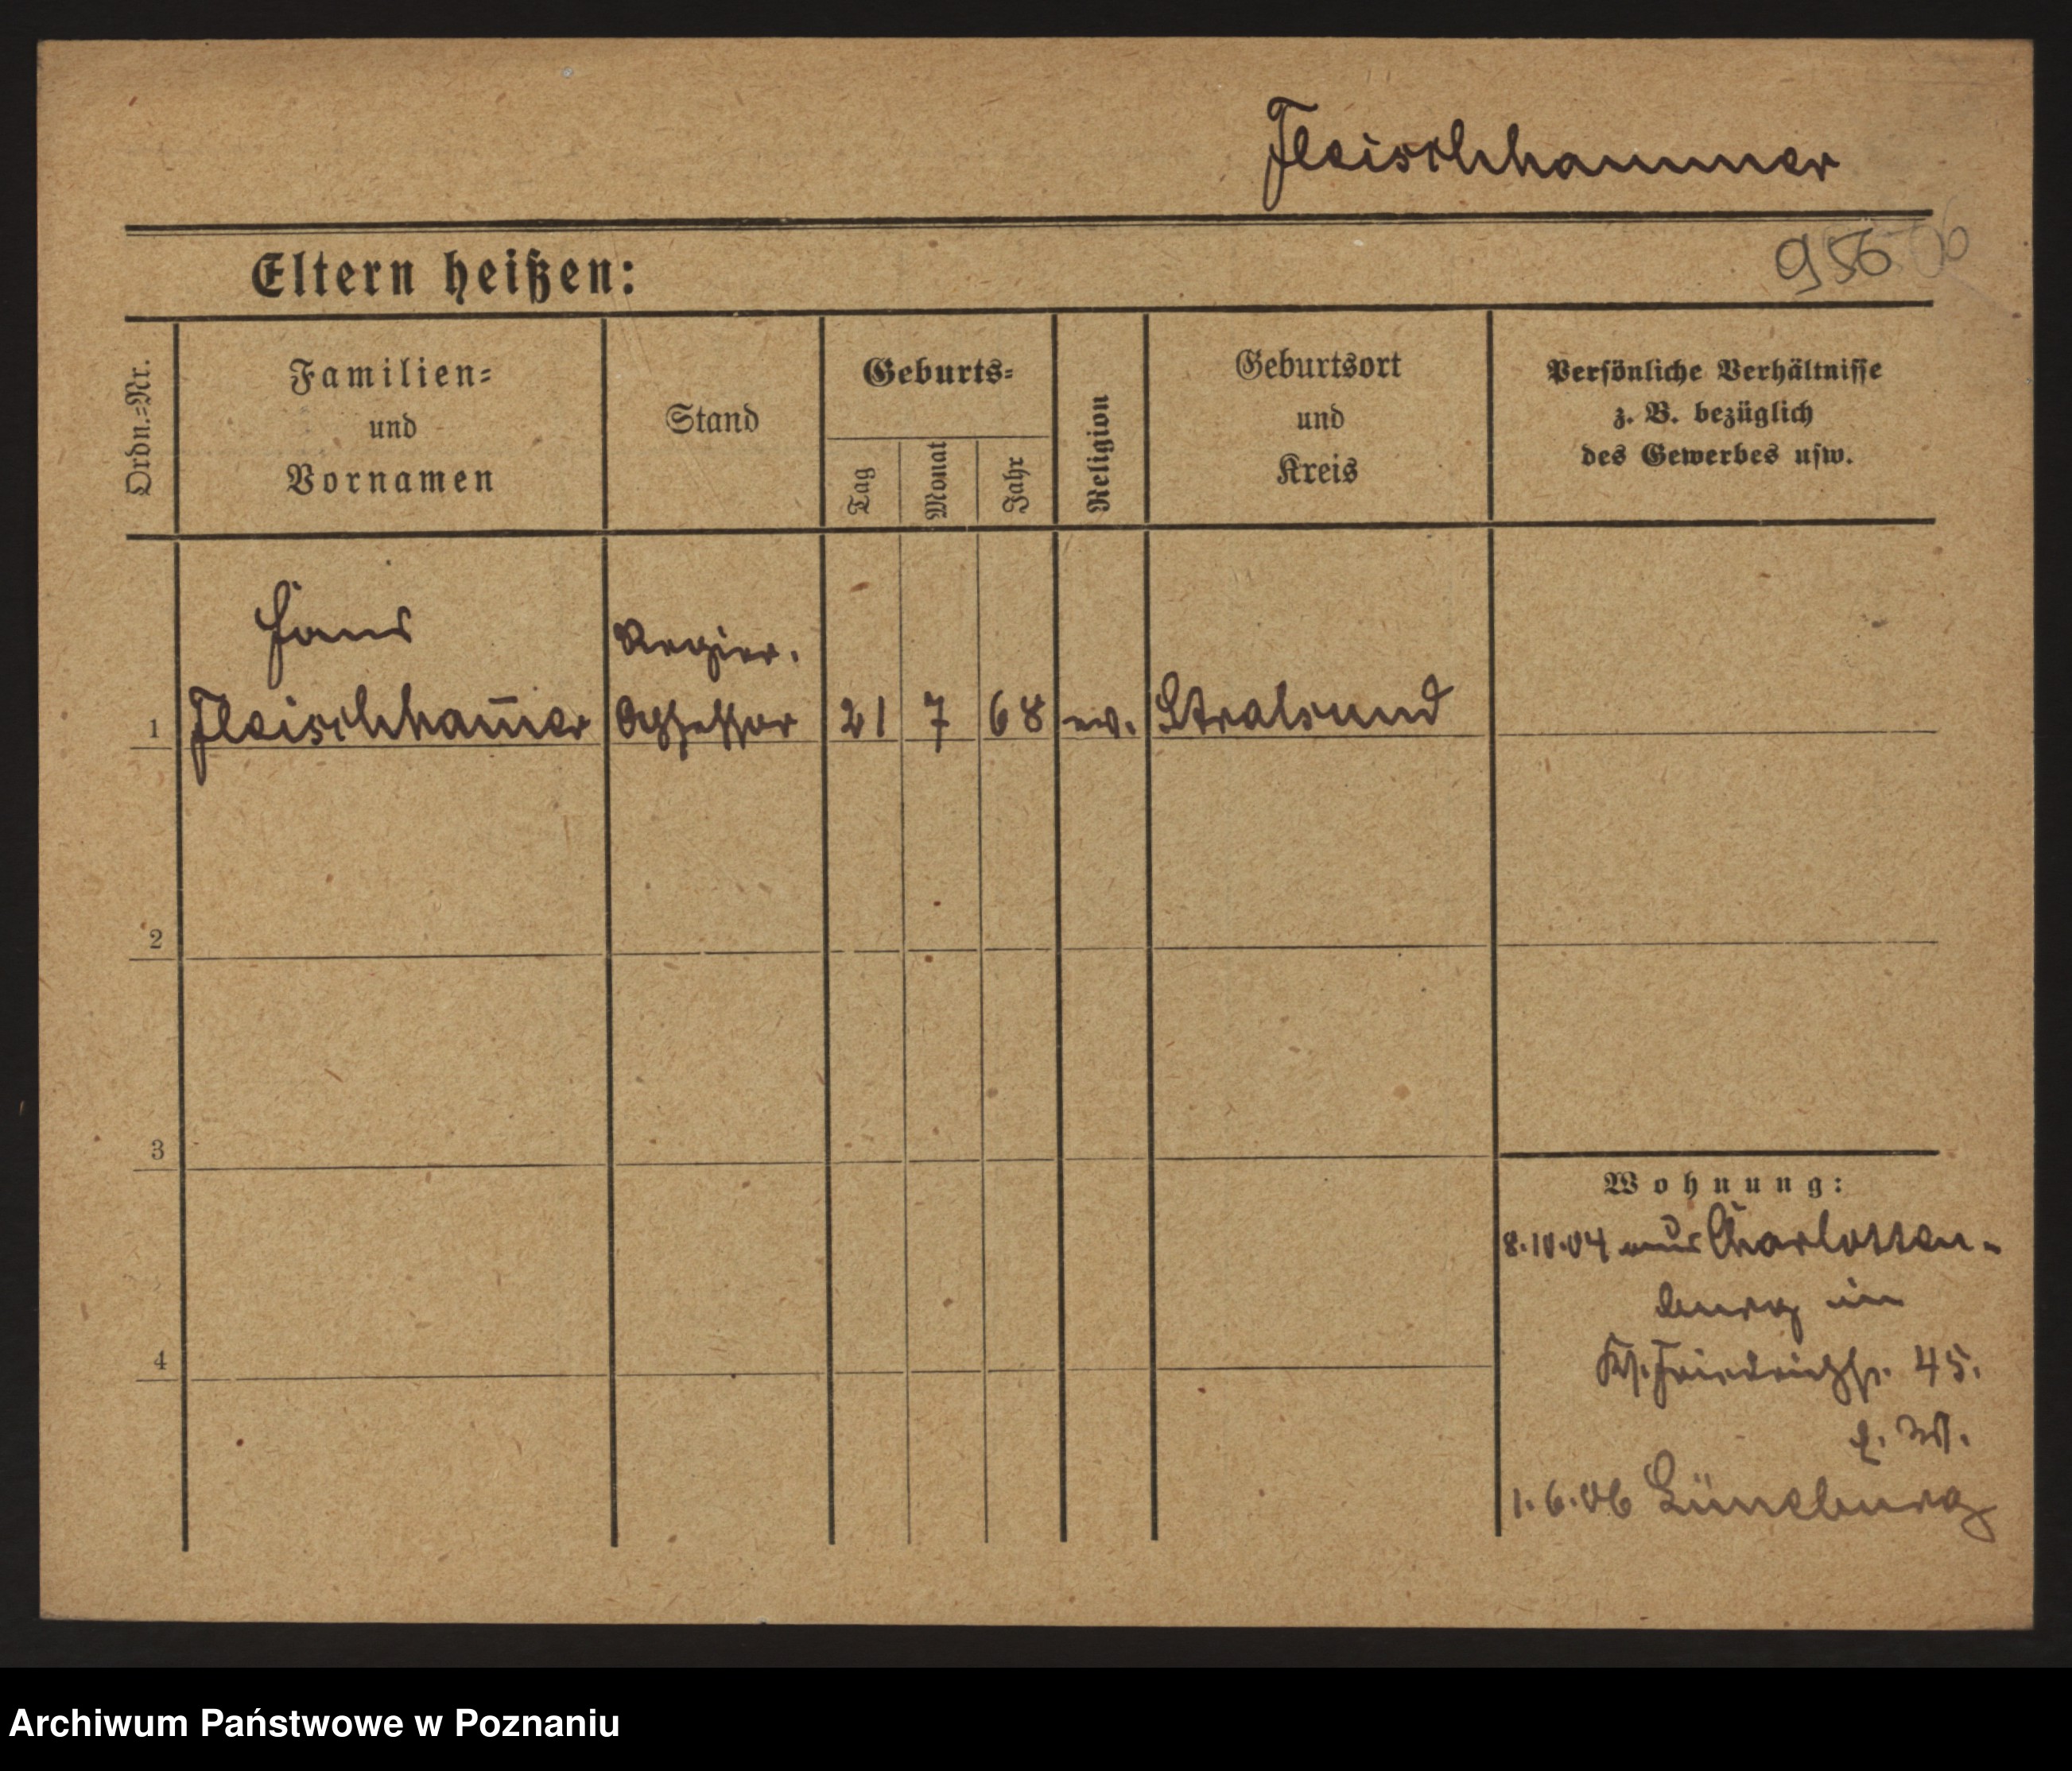 Fleischhammer
956
Eltern heißen:
Ordn.=Nr.
Familien=
und
Vornamen
Stand
Geburts=
Tag
Monat
Jahr
Religion
Geburtsort
und
Kreis
Persönliche Verhältnisse
z. B. bezüglich
des Gewerbes usw.
Hans Regier.
1 Fleischham̄er Assessor 21 7 68 ev. Stralsund
2
3
4
Wohnung:
8.10.04 aus Charlotten-
burg in
Friedrichstr. 45.
1.6.06 Lüneburg
Archiwum Państwowe w Poznaniu